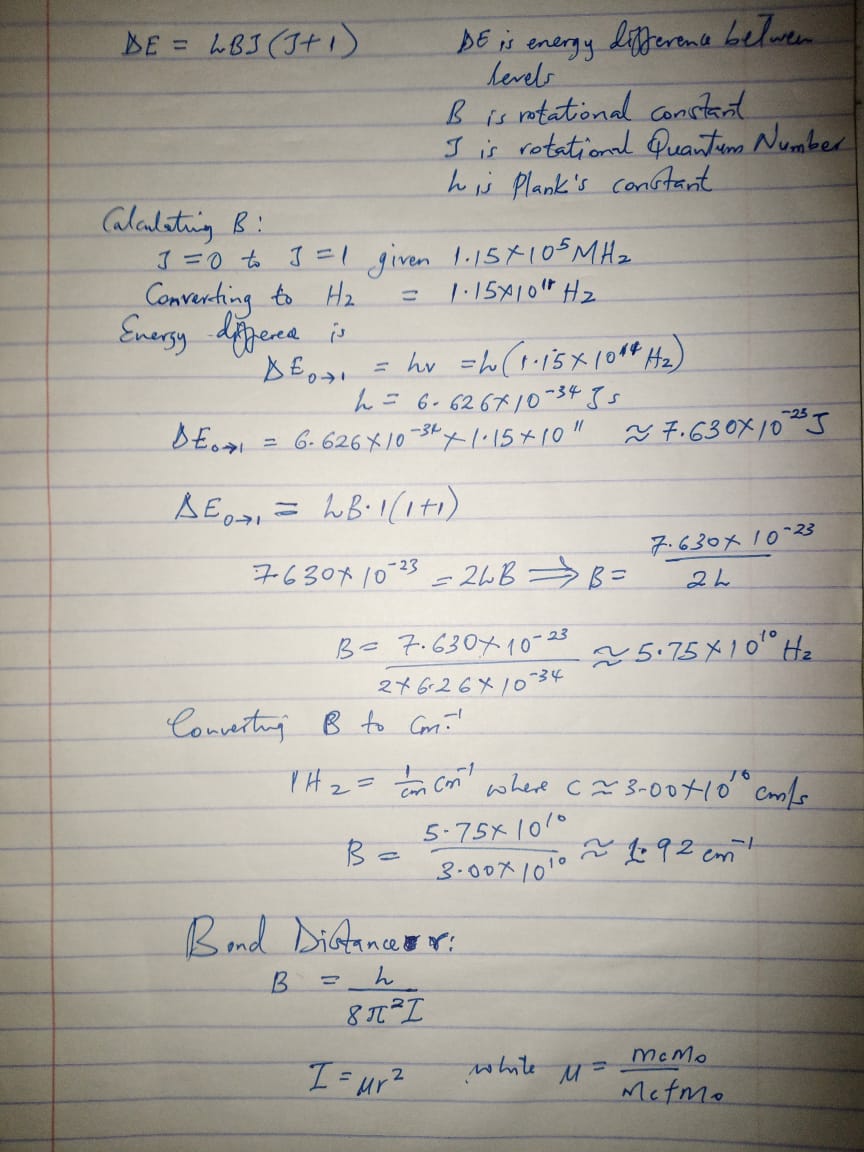 ΔE = hBJ(J+1)
ΔE is energy difference between
levels
B is rotational constant
J is rotational Quantum Number
h is Plank's constant
Calculating B:
J=0 to J=1 given 1.15×10⁵MHz
Converting to Hz = 1.15×10¹¹ Hz
Energy differece is
ΔE₀→₁ = hv = h(1.15×10¹¹ Hz)
h = 6.626×10⁻³⁴ Js
ΔE₀→₁ = 6.626×10⁻³⁴×1.15×10¹¹ ≈ 7.630×10⁻²³J
ΔE₀→₁ = hB·1(1+1)
7.630×10⁻²³ = 2hB ⟹ B = 7.630×10⁻²³ / 2h
B = 7.630×10⁻²³ / 2×6.626×10⁻³⁴ ≈ 5.75×10¹⁰ Hz
Converting B to cm⁻¹
1Hz = 1/cm cm⁻¹ where c ≈ 3.00×10¹⁰ cm/s
B = 5.75×10¹⁰ / 3.00×10¹⁰ ≈ 1.92 cm⁻¹
Bond Distance r:
B = h / 8π²I
I = μr² while μ = mcmo / mc+mo